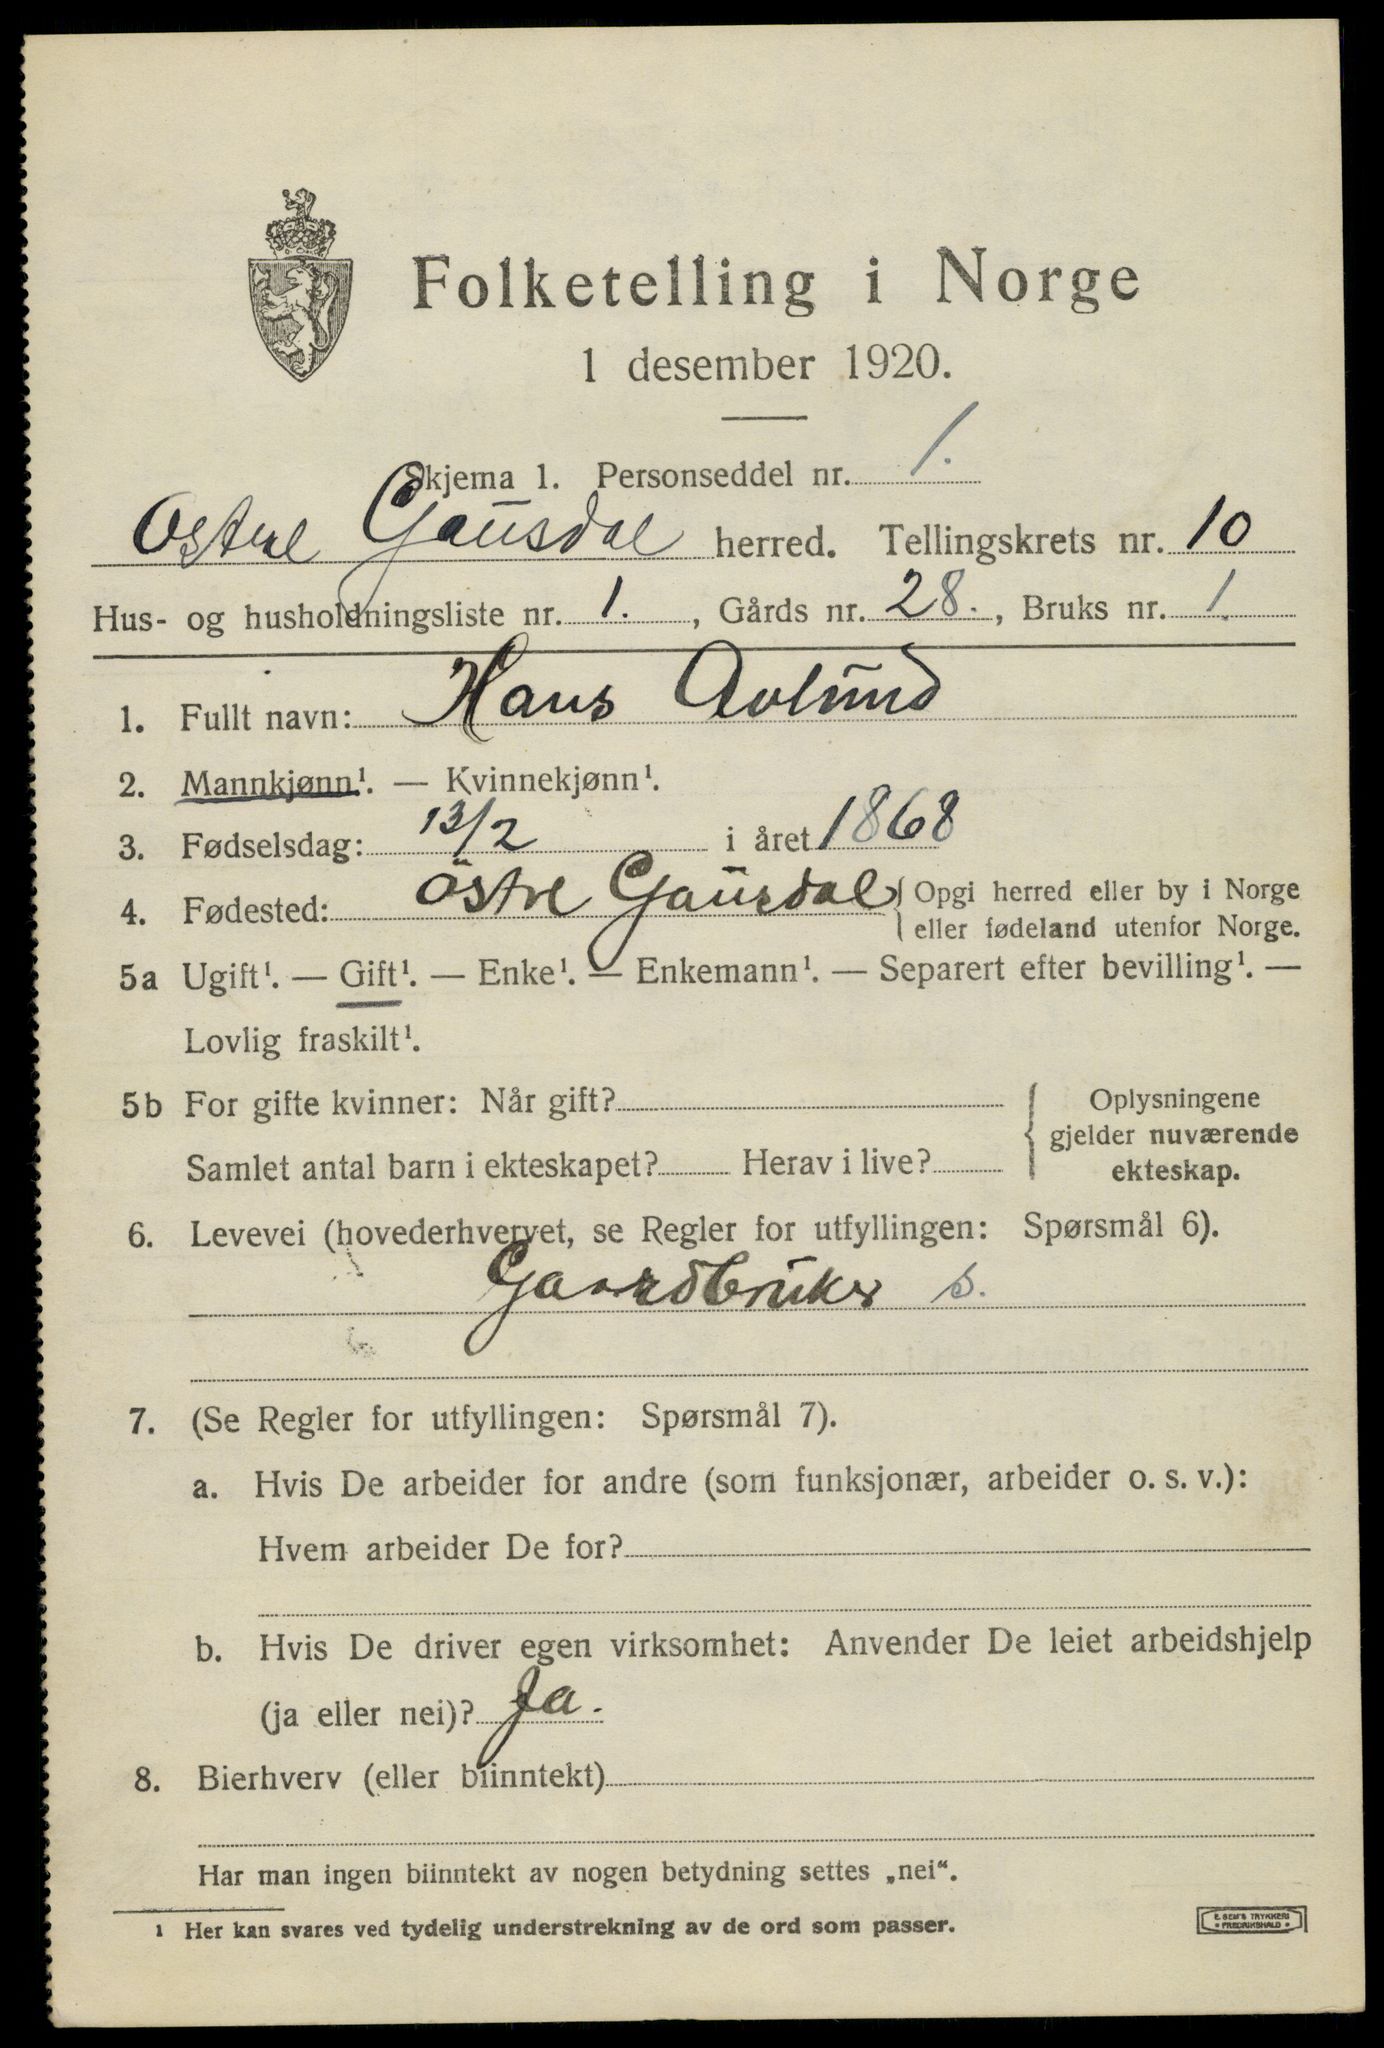 Folketelling i Norge
1 desember 1920.
Skjema 1. Personseddel nr. 1.
Østre Gausdal herred. Tellingskrets nr. 10
Hus- og husholdningsliste nr. 1. , Gårds nr. 28. , Bruks nr. 1.
1. Fullt navn: Hans Avlund
2. Mannkjønn¹. — Kvinnekjønn¹.
3. Fødselsdag: 13/2 i året 1868
4. Fødested: Östre Gausdal { Opgi herred eller by i Norge
eller fødeland utenfor Norge.
5a Ugift¹. — Gift¹. — Enke¹. — Enkemann¹. — Separert efter bevilling¹. —
Lovlig fraskilt¹.
5b For gifte kvinner: Når gift? { Oplysningene
gjelder nuværende
Samlet antal barn i ekteskapet? Herav i live? ekteskap.
6. Levevei (hovederhvervet, se Regler for utfyllingen: Spørsmål 6).
Gaardbruker s.
7. (Se Regler for utfyllingen: Spørsmål 7).
a. Hvis De arbeider for andre (som funksjonær, arbeider o. s. v.):
Hvem arbeider De for?
b. Hvis De driver egen virksomhet: Anvender De leiet arbeidshjelp
(ja eller nei)? Ja.
8. Bierhverv (eller biinntekt)
Har man ingen biinntekt av nogen betydning settes „nei“.
¹ Her kan svares ved tydelig understrekning av de ord som passer.
E. SEM'S TRYKKERI
• FREDRIKSHALD •